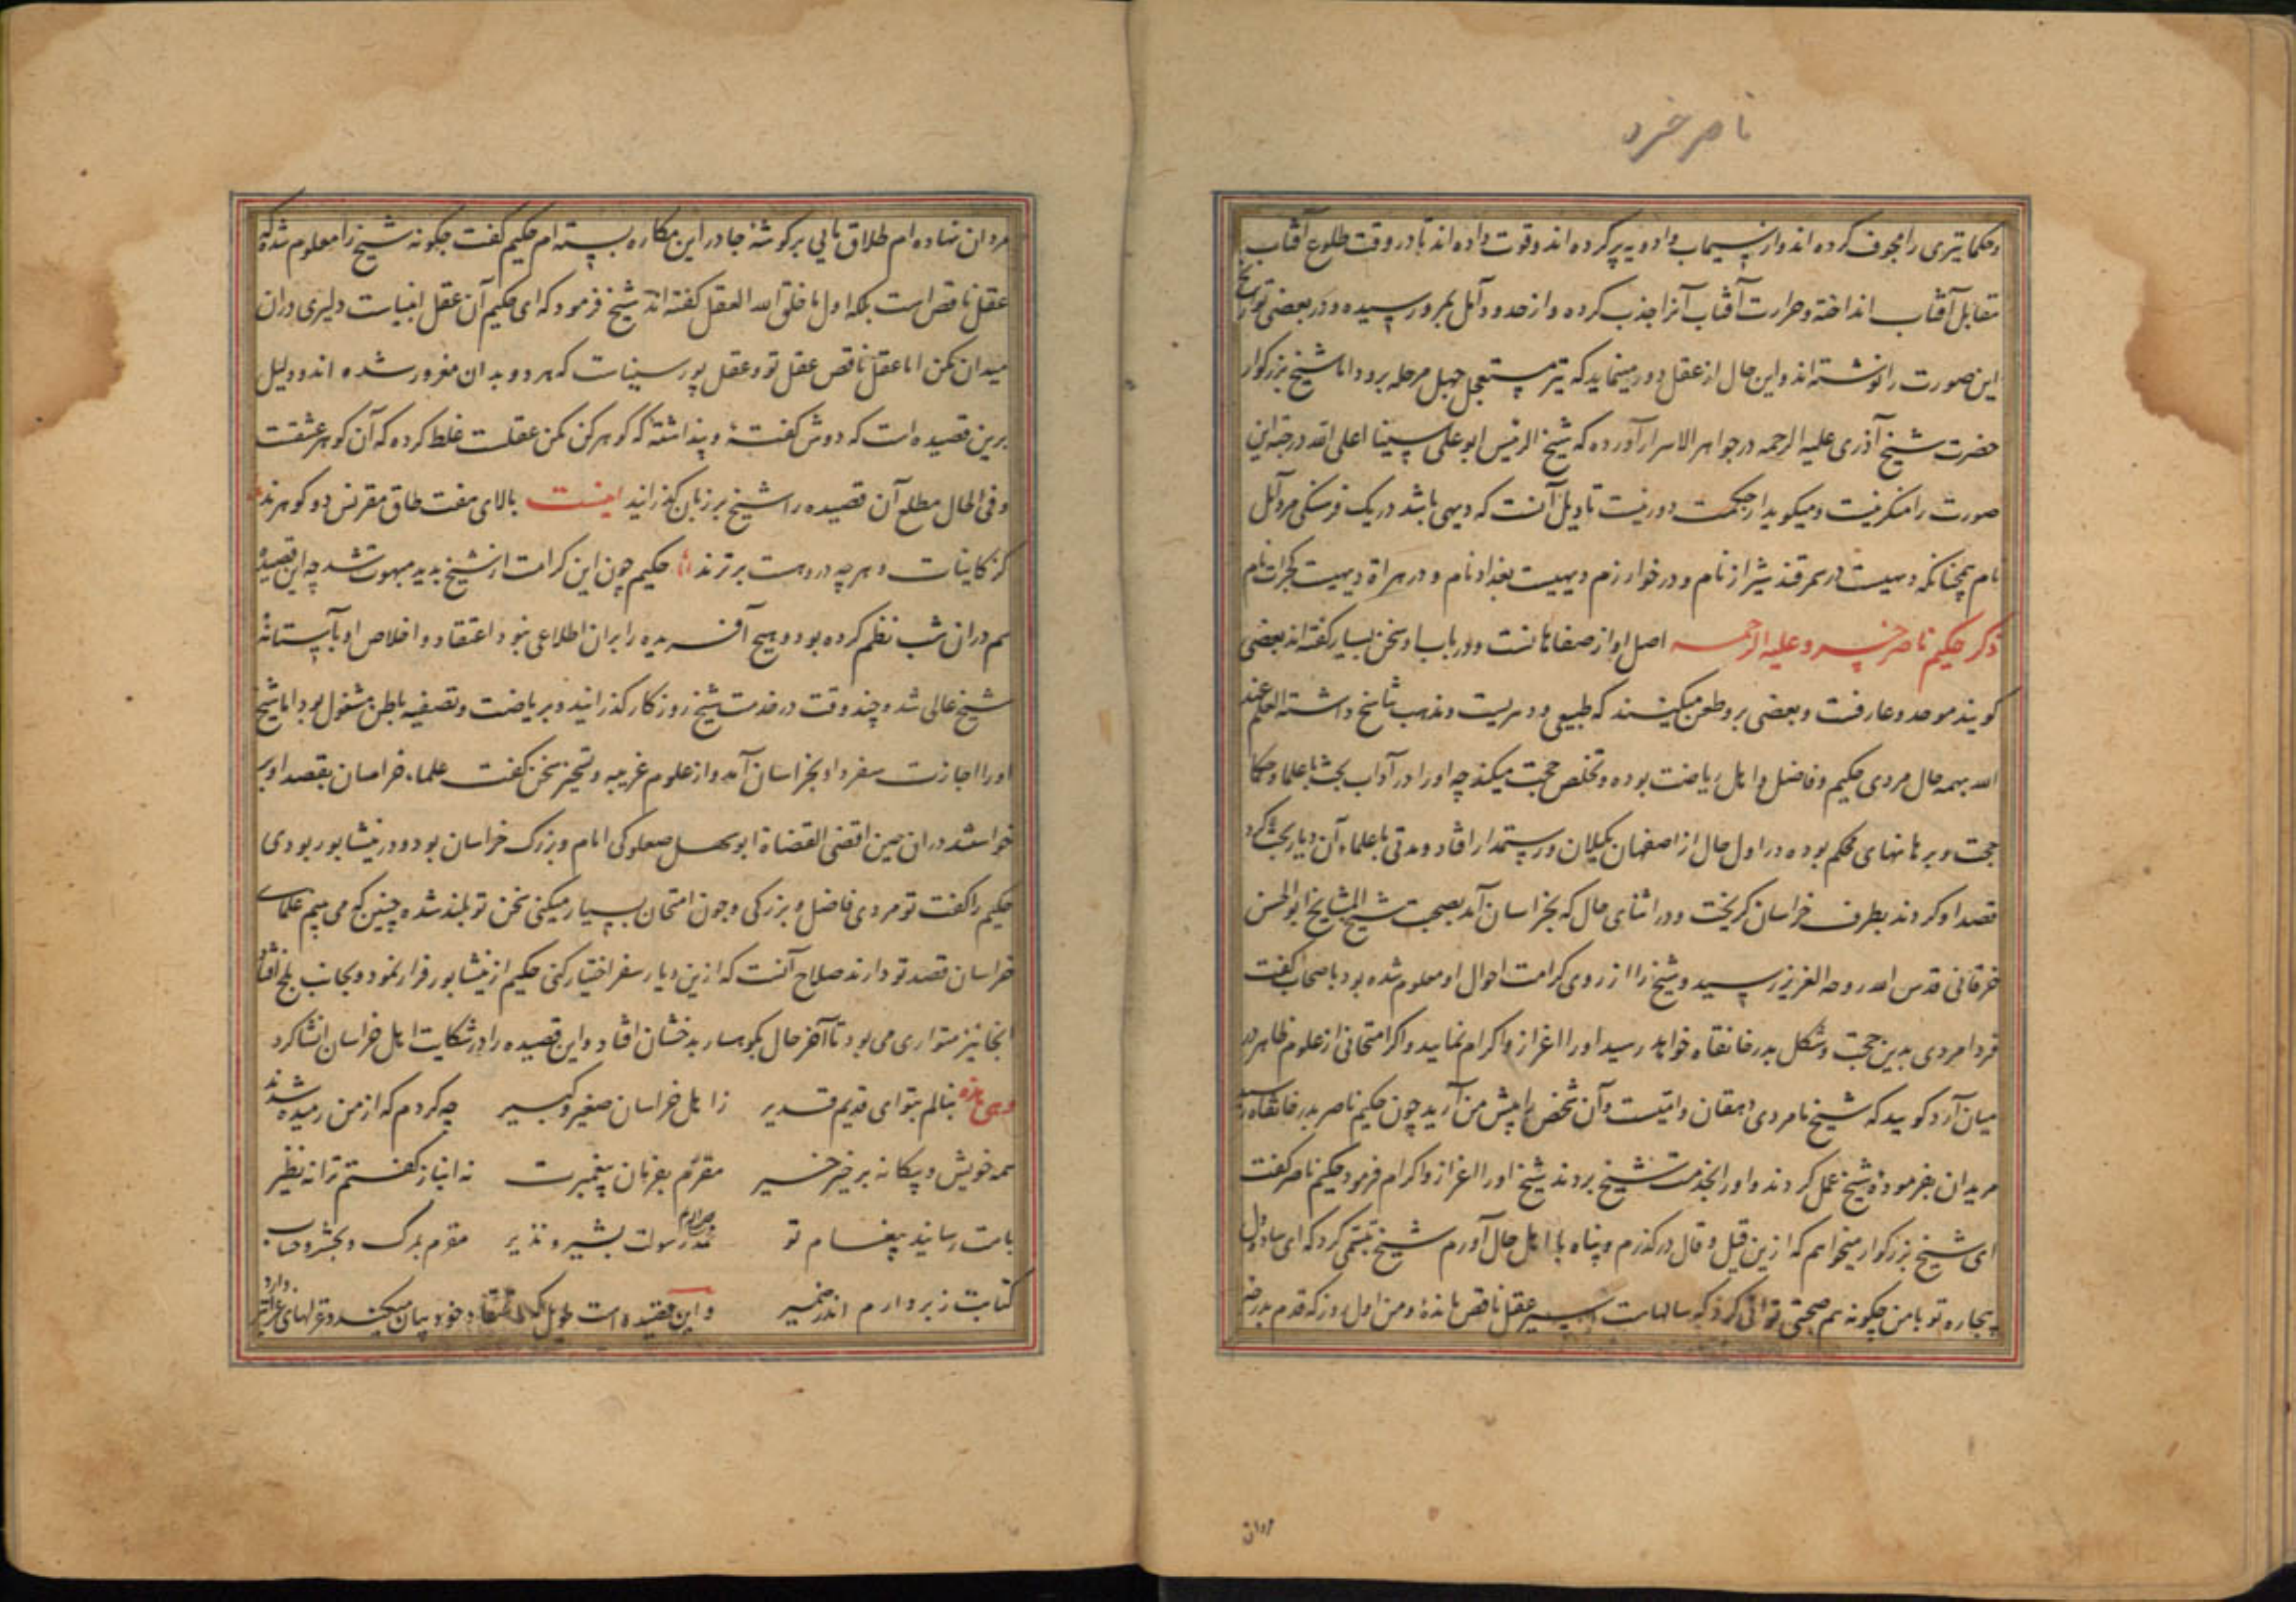 ناصر خسرو
و حکما تیری را مجوف کرده اند و از سیماب و ادویه پر کرده اند و قوت داده اند تا در وقت طلوع آفتاب
مقابل آفتاب انداخته و حرارت آفتاب آنرا جذب کرده و از حدود آمل بمرو رسیده و در بعضی تواریخ
این صورت را نوشته اند و این حال از عقل دور مینماید که تیر مستعجل چهل مرحله برود اما شیخ بزرگوار
حضرت شیخ آذری علیه الرحمه در جواهر الاسرار آورده که شیخ الرئیس ابو علی سینا اعلی الله درجته این
صورت را منکر نیست و میگوید از حکمت دور نیست تاویل آنست که دیهی باشد در یک فرسنگی مرو آمل
نام همچنانکه دهیست در سمرقند شیراز نام و در خوارزم دیهیست بغداد نام و در هراة دیهیست کجرات نام
ذکر حکیم ناصر خسرو علیه الرحمه اصل او از صفاهانست و در باب او سخن بسیار گفته اند بعضی
گویند موحد و عارفست و بعضی برو طعن میکنند که طبیعی و دهریست و مذهب تناسخ داشته العلم عند
الله بهمه حال مردی حکیم و فاضل و اهل ریاضت بوده و تخلص حجت میکند چه او را در آداب بحث با علما و حکما
حجت و برهانهای محکم بوده در اول حال از اصفهان بکیلان و رستمدار افتاد و مدتی با علماء آن دیار بحث کرد
قصد او کردند بطرف خراسان گریخت و در اثنای حال که بخراسان آمد بصحبت شیخ المشایخ ابو الحسن
خرقانی قدس الله روحه العزیز رسید و شیخ را از روی کرامت احوال او معلوم شده بود باصحاب گفت
فردا مردی بدین حجت و شکل بدر خانقاه خواهد رسید او را اعزاز و اکرام نمایید و اگر امتحانی از علوم ظاهر در
میان آرد گویید که شیخ ما مردی دهقان و امیست و آن شخص را پیش من آرید چون حکیم ناصر بدر خانقاه رسید
مریدان بفرموده شیخ عمل کردند و او را بخدمت شیخ بردند شیخ او را اعزاز و اکرام فرمود حکیم ناصر گفت
ای شیخ بزرگوار میخواهم که ازین قیل و قال در گذرم و پناه با اهل حال آورم شیخ تبسمی کرد که ای ساده دل
بیچاره تو با من چگونه هم صحبتی توانی کرد که سالهاست اسیر عقل ناقص مانده و من اول روز که قدم بدرجه
مردان نهاده ام طلاق بایی بر گوشهٔ چادر این مکاره بسته ام حکیم گفت چگونه شیخ را معلوم شده که
عقل ناقص است بلکه اول ما خلق الله العقل گفته اند شیخ فرمود که ای حکیم آن عقل انبیاست دلیری در آن
میدان مکن اما عقل ناقص عقل تو و عقل پور سیناست که هر دو بدان مغرور شده اند و دلیل
برین قصیده است که دوش گفتهٔ و پنداشتهٔ که گوهر کن مکن عقلست غلط کرده که آن گوهر عشقست
و فی الحال مطلع آن قصیده را شیخ بر زبان گذرانید اینست بالای هفت طاق مقرنس دو گوهرند
کز کاینات و هر چه دروهست برترند حکیم چون این کرامت از شیخ بدید مبهوت شد چه این قصیده
هم در آن شب نظم کرده بود و هیچ آفریده را بر آن اطلاعی نبود اعتقاد و اخلاص او بآستانهٔ
شیخ عالی شد و چند وقت در خدمت شیخ روزگار گذرانید و بریاضت و تصفیه باطن مشغول بود اما شیخ
او را اجازت سفر داد بخراسان آمد و از علوم غریبه و تسخیر سخن گفت علماء خراسان بقصد او بر
خواستند در آن حین اقضی القضاة ابو سهل صعلوکی امام و بزرگ خراسان بود و در نیشابور بودی
حکیم را گفت تو مردی فاضل و بزرگی و چون امتحان بسیار میکنی سخن تو بلند شده چنین که می بینم علمای
خراسان قصد تو دارند صلاح آنست که ازین دیار سفر اختیار کنی حکیم از نیشابور فرار نمود و بجانب بلخ افتاد
آنجا نیز متواری می بود تا آخر حال بکوهسار بدخشان افتاد و این قصیده را در شکایت اهل خراسان انشا کرد
وهی هذه بنالم بتو ای قدیم قدیر ز اهل خراسان صغیر و کبیر چه کردم که از من رمیده شدند
همه خویش و بیگانه بر خیر خیر مقرم بفرمان پیغمبرت نه انباز گفتم ترا نه نظیر
بامت رسانید پیغام تو محمد رسولت بشیر و نذیر مقرم بمرگ و بحشر و حساب
کتابت ز بر دارم اندر ضمیر و این قصیده است طویل که اعتقاد خود بیان میکند و غزلهای غرا دارد
مردان